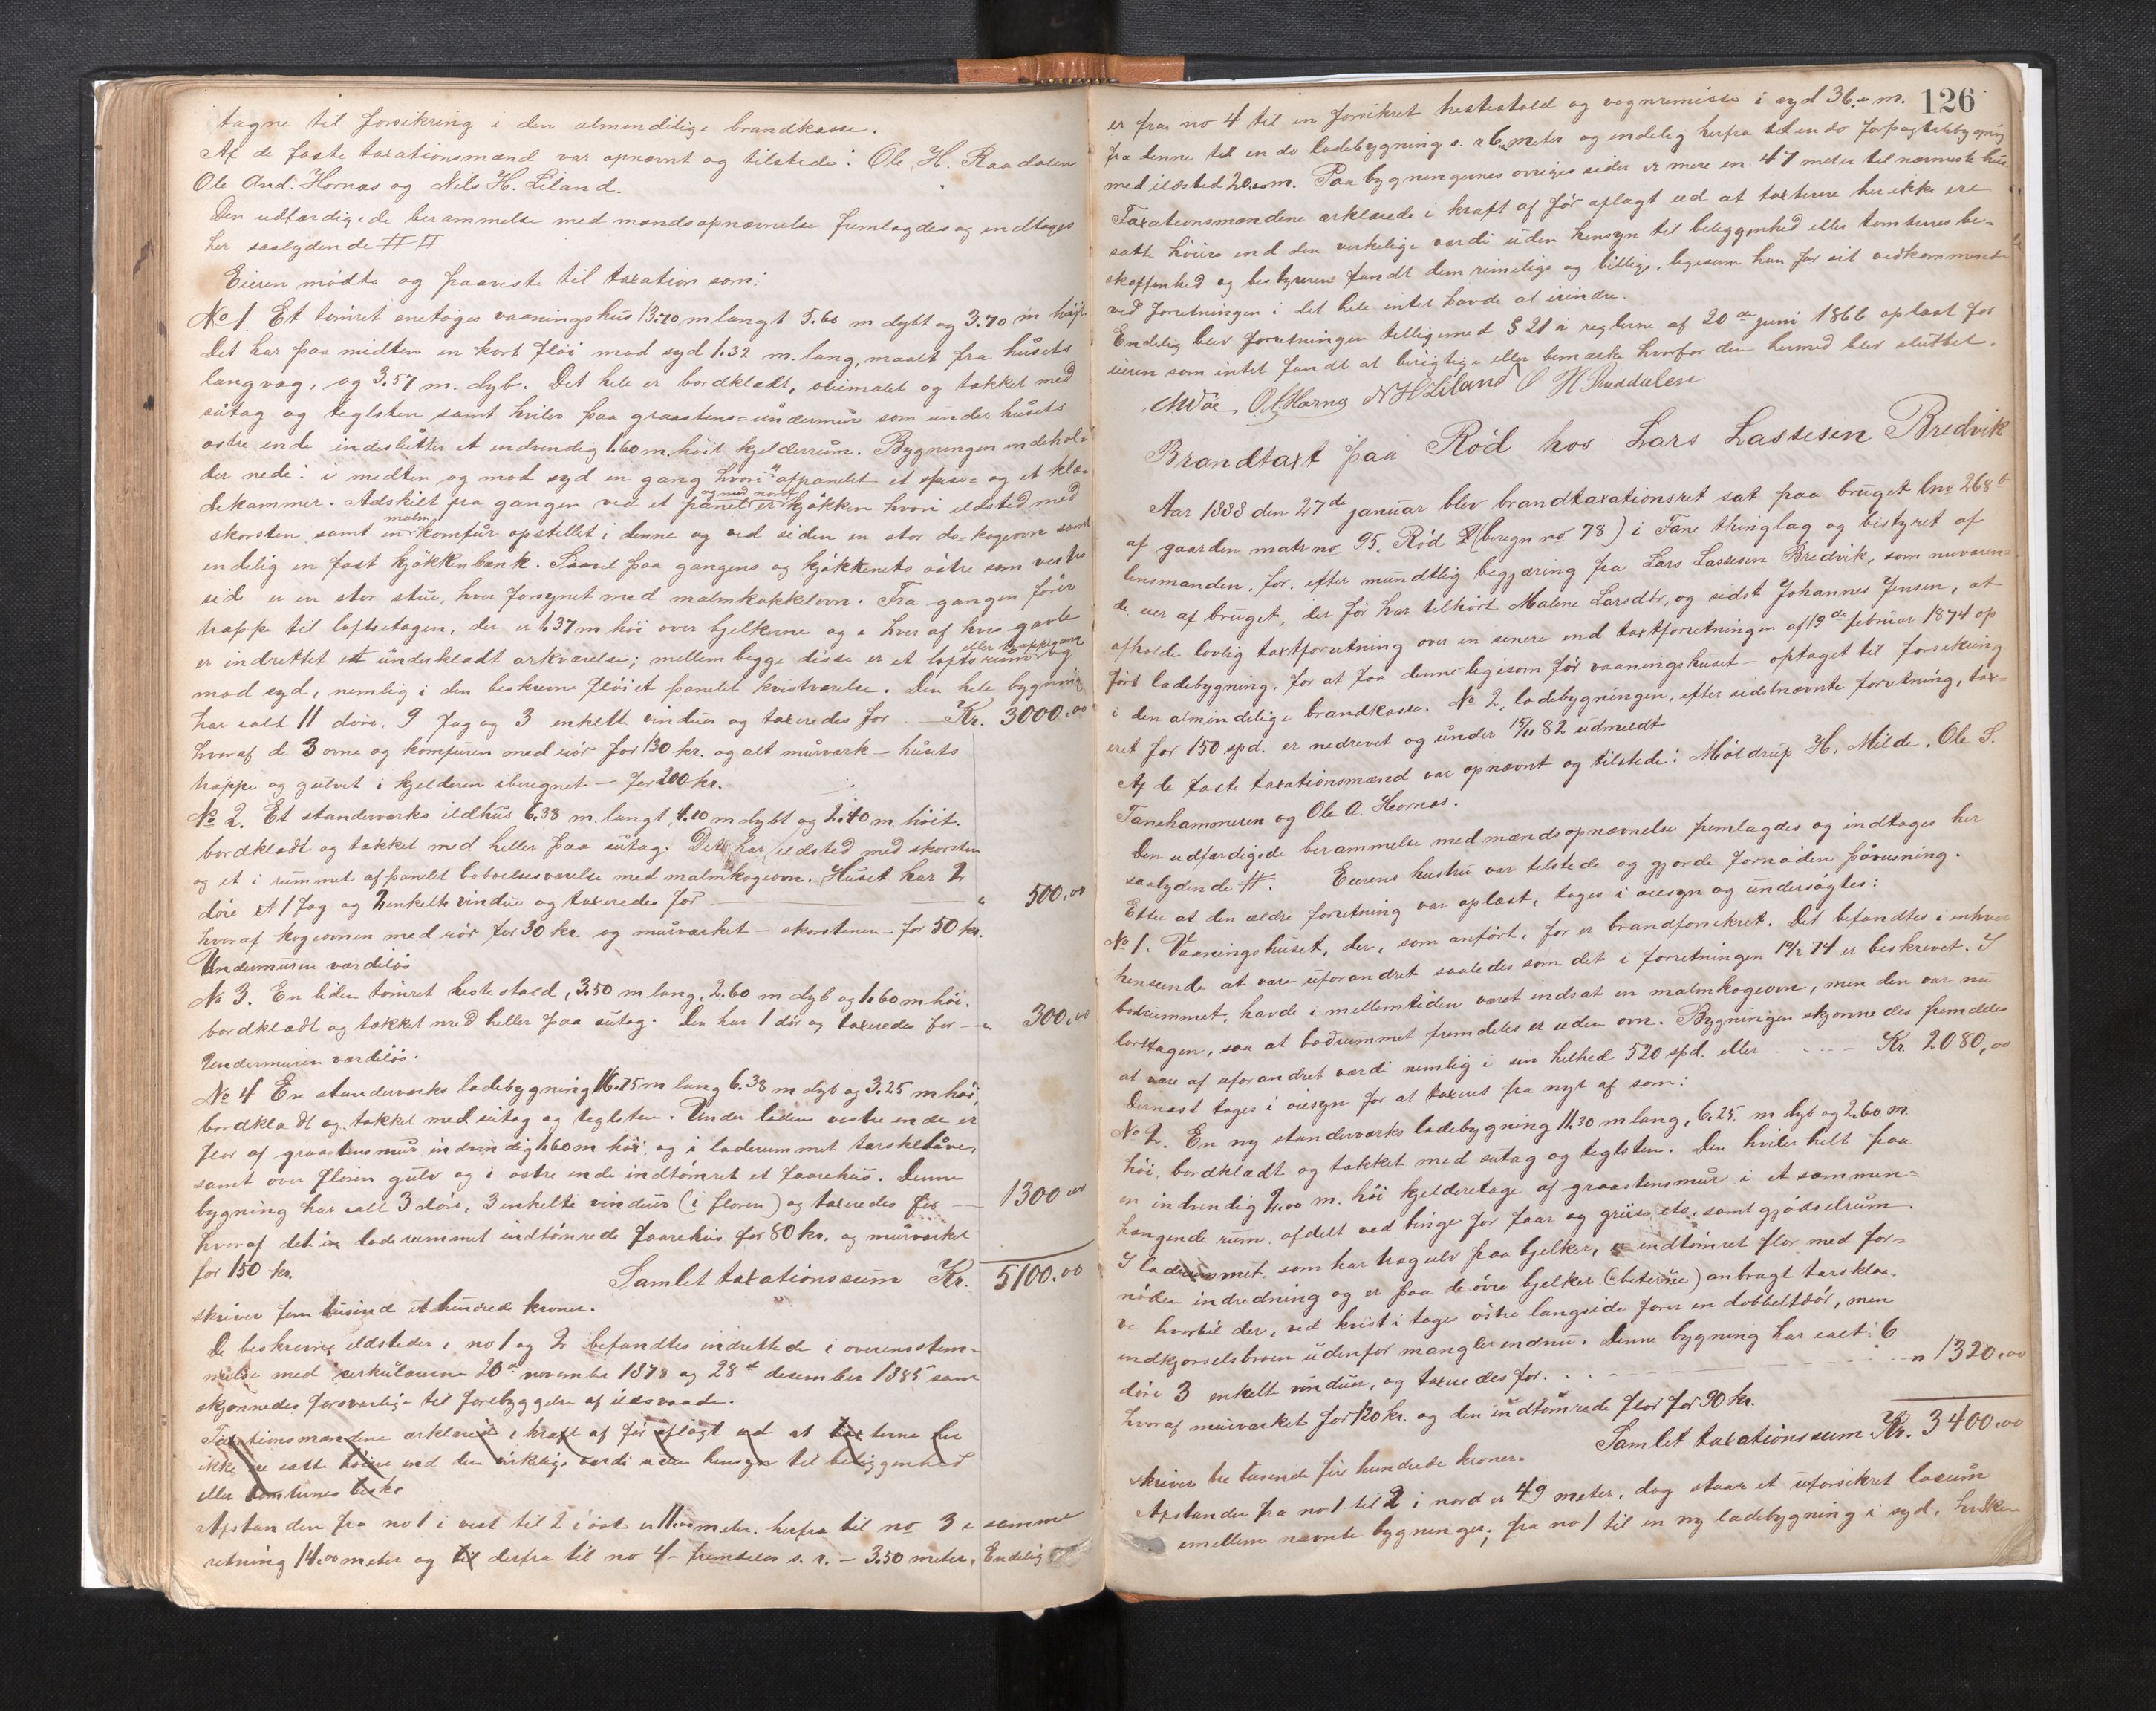 tagne til forsikring i den almindelige brandkasse.
Af de faste taxationsmænd var opnævnt og tilstede: Ole H. Raadalen
Ole And. Hornæs og Nils H. Liland.
Den udfærdigede berammelse med mandsopnævnelse fremlagdes og indtages
her saalydende # #
Eieren mødte og paaviste til taxation som:
No 1. Et tømret enetages vaaningshus 13.70 m langt 5.60 m dybt og 3.70 m høit
Det har paa midten en kort fløi mod syd 1.32 m. lang, maalt fra husets
langvæg, og 3.57 m. dyb. Det hele er bordklædt, oliemalet og takket med
sutag og teglsten samt hviler paa graastens-undermur som under husets
østre ende indeslutter et indvendig 1.60 m. høit kjelderrum. Bygningen indehol-
der nede: i midten og mod syd en gang hvori afpanelet et spise- og et klæ-
dekammer. Adskilt fra gangen ved et panel er og mod nord kjøkken hvori ildsted med
skorsten samt en malm komfur opstillet i denne og ved siden en stor do-kogeovn samt
endelig en fast kjøkkenbænk. Saavel paa gangens og kjøkkenets østre som vestre
side er en stor stue, hver forsynet med malmkakkelovn. Fra gangen fører
trappe til loftsetagen, der er 1.37 m høi over bjelkerne og i hver af hvis gavle
er indrettet et underklædt arkværelse; mellem begge disse er et loftsrum eller trappegang og
mod syd, nemlig i den beskrevne fløi et panelet kvistværelse. Den hele bygning
har ialt 11 døre. 9 fag og 3 enkelte vinduer og taxeredes for — Kr. 3000.00
hvoraf de 3 ovne og komfuren med rør for 130 kr. og alt murværk — husets
trappe og gulvet i kjelderen iberegnet — for 200 kr.
No 2. Et standerværks ildhus 6.38 m. langt, 4.10 m dybt og 2.40 m. høit.
bordklædt og takket med heller paa sutag. Det har ildsted med skorsten
og et i rummet afpanelet beboelsesværelse med malmkogeovn. Huset har 2
døre et 1 fag og 2 enkelte vindue og taxeredes for — " 500.00
hvoraf kogeovnen med rør for 30 kr. og murværket — skorstenen — for 50 kr.
Undermuren værdiløs
No 3. En liden tømret hestestald, 3.50 m lang, 2.60 m dyb og 1.60 m høi.
bordklædt og takket med heller paa sutag. Den har 1 dør og taxeredes for — " 300.00
Undermuren værdiløs.
No 4 En standerværks ladebygning 16.75 m lang 6.38 m dyb og 3.25 m høi,
bordklædt og takket med sutag og teglsten. Under ladens vestre ende er
flor af graastensmur indvendig 1.60 m høi, og i laderummet tærskelåve,
samt over floren gulv og i østre ende indtømret et faarehus. Denne
bygning har ialt 3 døre, 3 enkelte vinduer (i floren) og taxeredes for — 1300.00
hvoraf det in laderummet indtømrede faarehus for 80 kr. og murværket
for 150 kr.
Samlet taxationssum Kr. 5100.00
skriver fem tusind et hundrede kroner.
De beskrevne ildsteder i no 1 og 2 befandtes indrettede i overensstem-
melse med cirkulærerne 20de november 1878 og 28de desember 1885 samt
skjønnedes forsvarlige til forebyggelse af ildsvaade.
Taxationsmændene erklærede i kraft af før aflagt ed at taxterne her
ikke ere satte høiere end den virkelige værdi uden hensyn til beliggenhed
eller tomternes beska
Afstanden fra no 1 i vest til 2 i øst er 11.00 meter. herfra til no 3 i samme
retning 14.00 meter og til derfra til no 4 — fremdeles s. r. — 3.50 meter. Endelig
126
er fra no 4 til en forsikret hestestald og vognremisse i syd 36.00 m.
fra denne til en do ladebygning s. r 6.00 meter og endelig herfra til en do forpagterbygning
med ildsted 20.00 m. Paa bygningernes øvrige sider er mere en 47 meter til nærmeste hus
Taxationsmændene erklærede i kraft af før aflagt ed at taxterne her ikke ere
satte høiere end den verkelige værdi uden hensyn til beleggenhed eller tomternes be-
skaffenhed og bestyreren fandt dem rimelige og billige, ligesom han for sit vedkommende
ved forretningen i det hele intet havde at erindre.
Endelig blev forretningen tilligemed § 21 i reglerne af 20de juni 1866 oplæst for
eieren som intet fandt at berigtige eller bemærke hvorfor den hermed blev sluttet.
O A Hornæs N H Liland O H Raadalen
Brandtaxt paa Rød hos Lars Lassesen Bredvik
Aar 1888 den 27de januar blev brandtaxationsret sat paa bruget lno 268b
af gaarden matr no 95. Rød (beregn no 78) i Fane thinglag og bestyret af
lensmanden, for, efter mundtlig begjæring fra Lars Lassesen Bredvik, som nuværen-
de eier af bruget, der før har tilhørt Malene Larsdtr, og sidst Johannes Jensen, at
afholde lovlig taxtforretning over en senere end taxtforretningen af 19de februar 1874 op
ført ladebygning, for at faa denne ligesom før vaaningshuset — optaget til forsikring
i den almindelige brandkasse. No 2, ladebygningen, efter sidstnævnte forretning, tax-
eret for 150 spd. er nedrevet og under 15/11 82 udmeldt
Af de faste taxationsmænd var opnævnt og tilstede: Møldrup H. Milde, Ole S.
Fanehammeren og Ole A. Hornæs.
Den udfærdigede berammelse med mandsopnævnelse fremlagdes og indtages her
saalydende #. Eierens hustru var tilstede og gjorde fornøden påvisning.
Efter at den ældre forretning var oplæst, toges i øiesyn og undersøgtes:
No 1. Vaaningshuset, der, som anført, før er brandforsikret. Det befandtes i enhver
henseende at være uforandret saaledes som det i forretningen 19/2 74 er beskrevet. I
bodrummet, havde i mellemtiden været indsat en malmkogeovn, men den var nu
borttagen, saa at bodrummet fremdeles er uden ovn. Bygningen skjønnedes fremdeles
at være af uforandret værdi nemlig i sin helhed 520 spd. eller — Kr. 2080,00
Dernæst toges i øiesyn for at taxeres fra nyt af som:
No 2. En ny standerværks ladebygning 11.30 m lang, 6.25. m dyb og 2.60 m.
høi, bordklædt og takket med sutag og teglsten. Den hviler helt paa
en indvendig 2.00 m. høi kjelderetage af graastensmur i et sammen-
hængende rum, afdelt ved binge for faar og grise, etc, samt gjødselrum.
I laderummet, som har tragulv paa bjelker, er indtømret flor med for-
nøden indredning og er paa de øvre bjelker (beterne) anbragt tærsklaa-
ve hvortil der, ved kvist i tagets østre langside fører en dobbeltdør, men
indkjørselsbroen udenfor mangler endnu. Denne bygning har ialt: 6
døre 3 enkelt vinduer, og taxeredes for . . . . " 1320.00
hvoraf murværket for 120 kr. og den indtømrede flor for 90 kr.
Samlet taxationssum Kr. 3400.00
skriver tre tusende fire hundrede kroner.
Afstanden fra no 1 til 2 i nord er 49 meter, dog staar et uforsikret
emellem nævnte bygninger; fra no 1 til en ny ladebygning i syd, hvilken